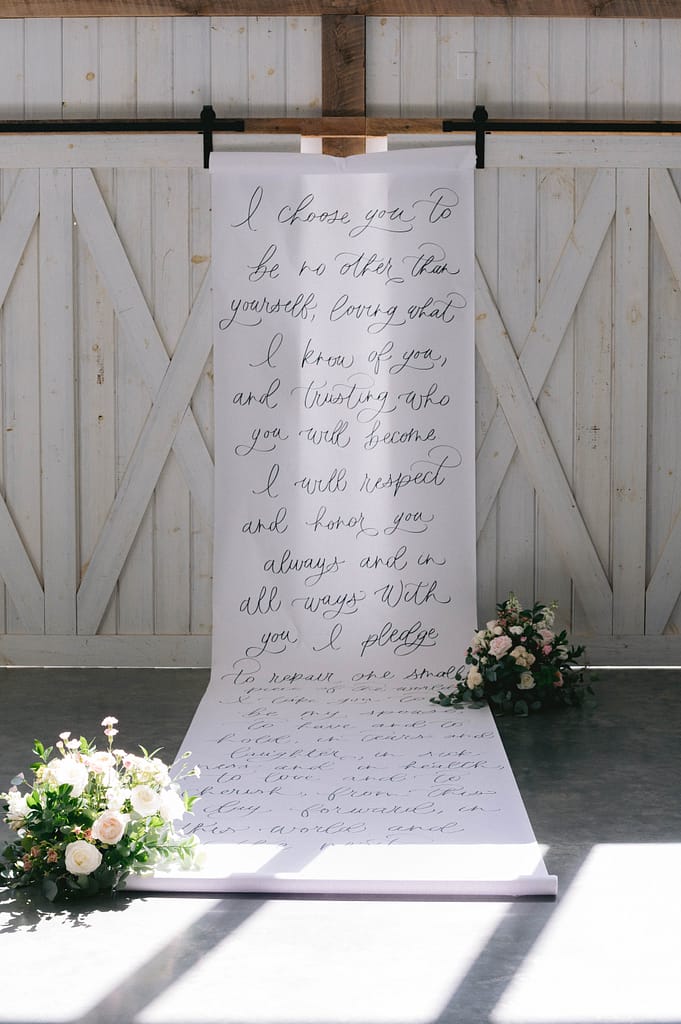 I choose you to
be no other than
yourself, loving what
I know of you,
and trusting who
you will become
I will respect
and honor you
always and in
all ways With
you I pledge
to repair one small
piece of the
I take you to
be my spouse
to have and to
hold, in tears and
laughter, in sick
ness and in health,
to love and to
cherish, from this
day forward, in
this world and
the next